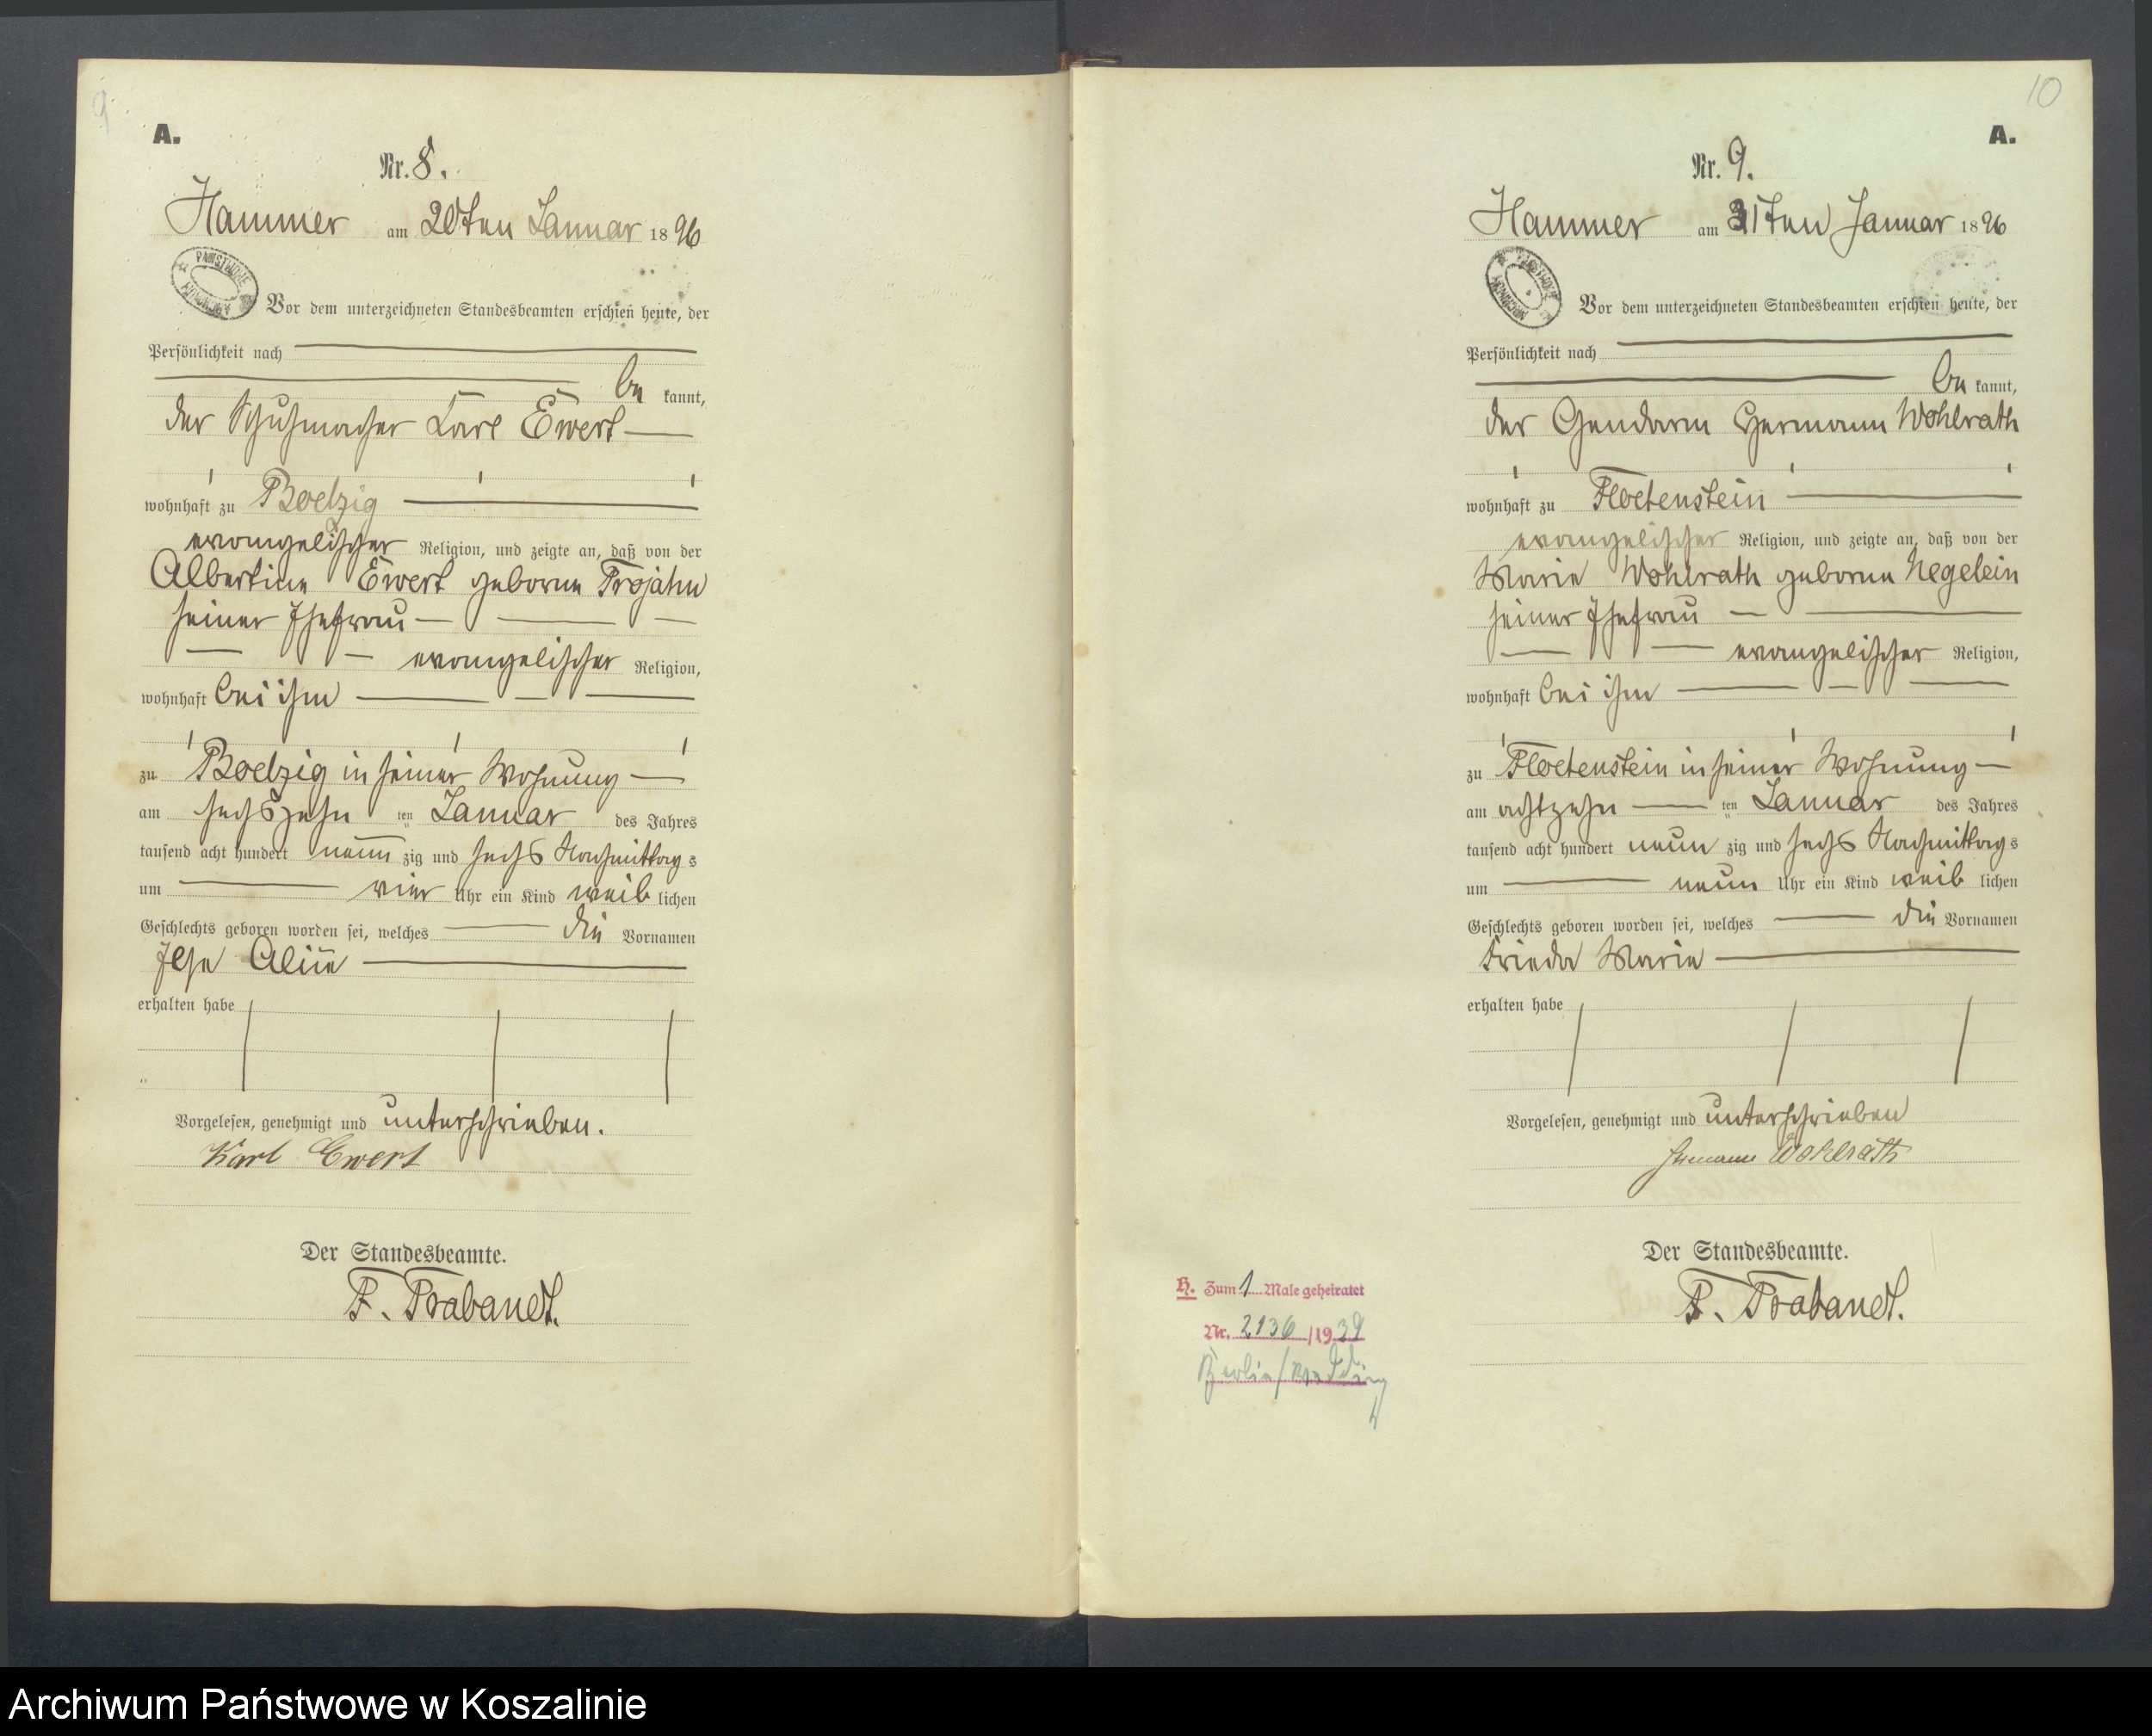 9
A.
Nr. 8.
Hammer am 20ten Januar 1896
PAŃSTWOWE ARCHIWUM
Vor dem unterzeichneten Standesbeamten erschien heute, der
Persönlichkeit nach
be kannt,
der Schuhmacher Karl Ewert
wohnhaft zu Boelzig
evangelischer Religion, und zeigte an, daß von der
Albertine Ewert geborne Trojahn
seiner Ehefrau
evangelischer Religion,
wohnhaft bei ihm
zu Boelzig in seiner Wohnung
am sechszehn ten Januar des Jahres
tausend acht hundert neun zig und sechs Nachmittags
um vier Uhr ein Kind weib lichen
Geschlechts geboren worden sei, welches die Vornamen
Ilse Aline
erhalten habe
Vorgelesen, genehmigt und unterschrieben.
Karl Ewert
Der Standesbeamte.
F. Trabandt.
10
A.
Nr. 9.
Hammer am 21ten Januar 1896
Vor dem unterzeichneten Standesbeamten erschien heute, der
Persönlichkeit nach
be kannt,
der Gendarm Hermann Wohlrath
wohnhaft zu Floetenstein
evangelischer Religion, und zeigte an, daß von der
Marie Wohlrath geborne Negelein
seiner Ehefrau
evangelischer Religion,
wohnhaft bei ihm
zu Floetenstein in seiner Wohnung
am achtzehn ten Januar des Jahres
tausend acht hundert neun zig und sechs Nachmittags
um neun Uhr ein Kind weib lichen
Geschlechts geboren worden sei, welches die Vornamen
Frieda Marie
erhalten habe
Vorgelesen, genehmigt und unterschrieben
Hermann Wohlrath
Der Standesbeamte.
F. Trabandt.
H. Zum 1 Male geheiratet
Nr. 2136 /1939
Berlin/Wedding
Archiwum Państwowe w Koszalinie